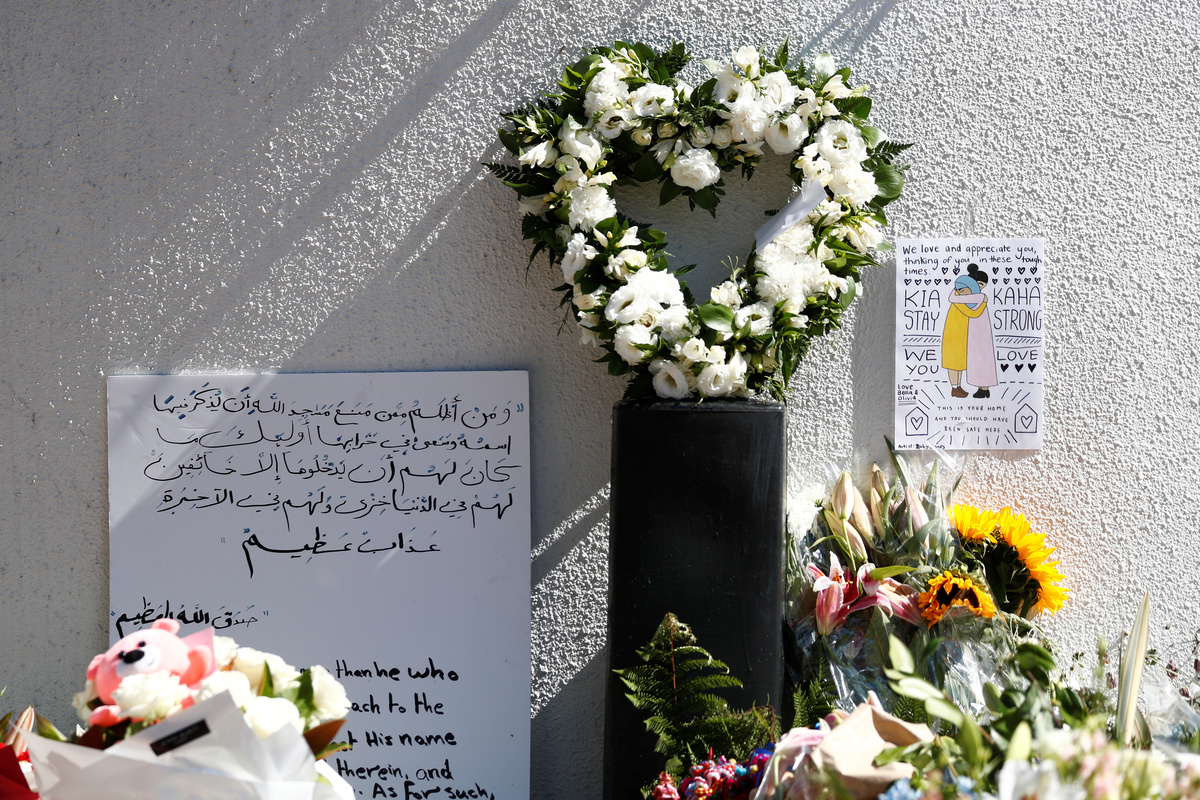 "وَمَنْ أَظْلَمُ مِمَّن مَنَعَ مَسَجِدَ اللهِ أَن يُذْكَرَ فِيهَا
اسمُهُ وَسَعَى فِي خَرَابِهَا أُولَئِكَ مَا
كَانَ لَهُم أَن يَدْخُلُوهَا إِلَّا خَائِفِينَ
لَهُمْ فِي الدُّنيَا خِزيٌ وَلَهُمْ فِي الآخِرَةِ
عَذَابٌ عَظِيمٌ"
"صَدَقَ اللهُ العَظِيم"
than he who
to the
His name
therein, and
. As for such,
We love and appreciate you,
thinking of you in these tough
times.
KIA KAHA
STAY STRONG
WE LOVE
YOU
Love
Bella &
Olivia
THIS IS YOUR HOME
AND YOU SHOULD HAVE
BEEN SAFE HERE
Artist: Ruby